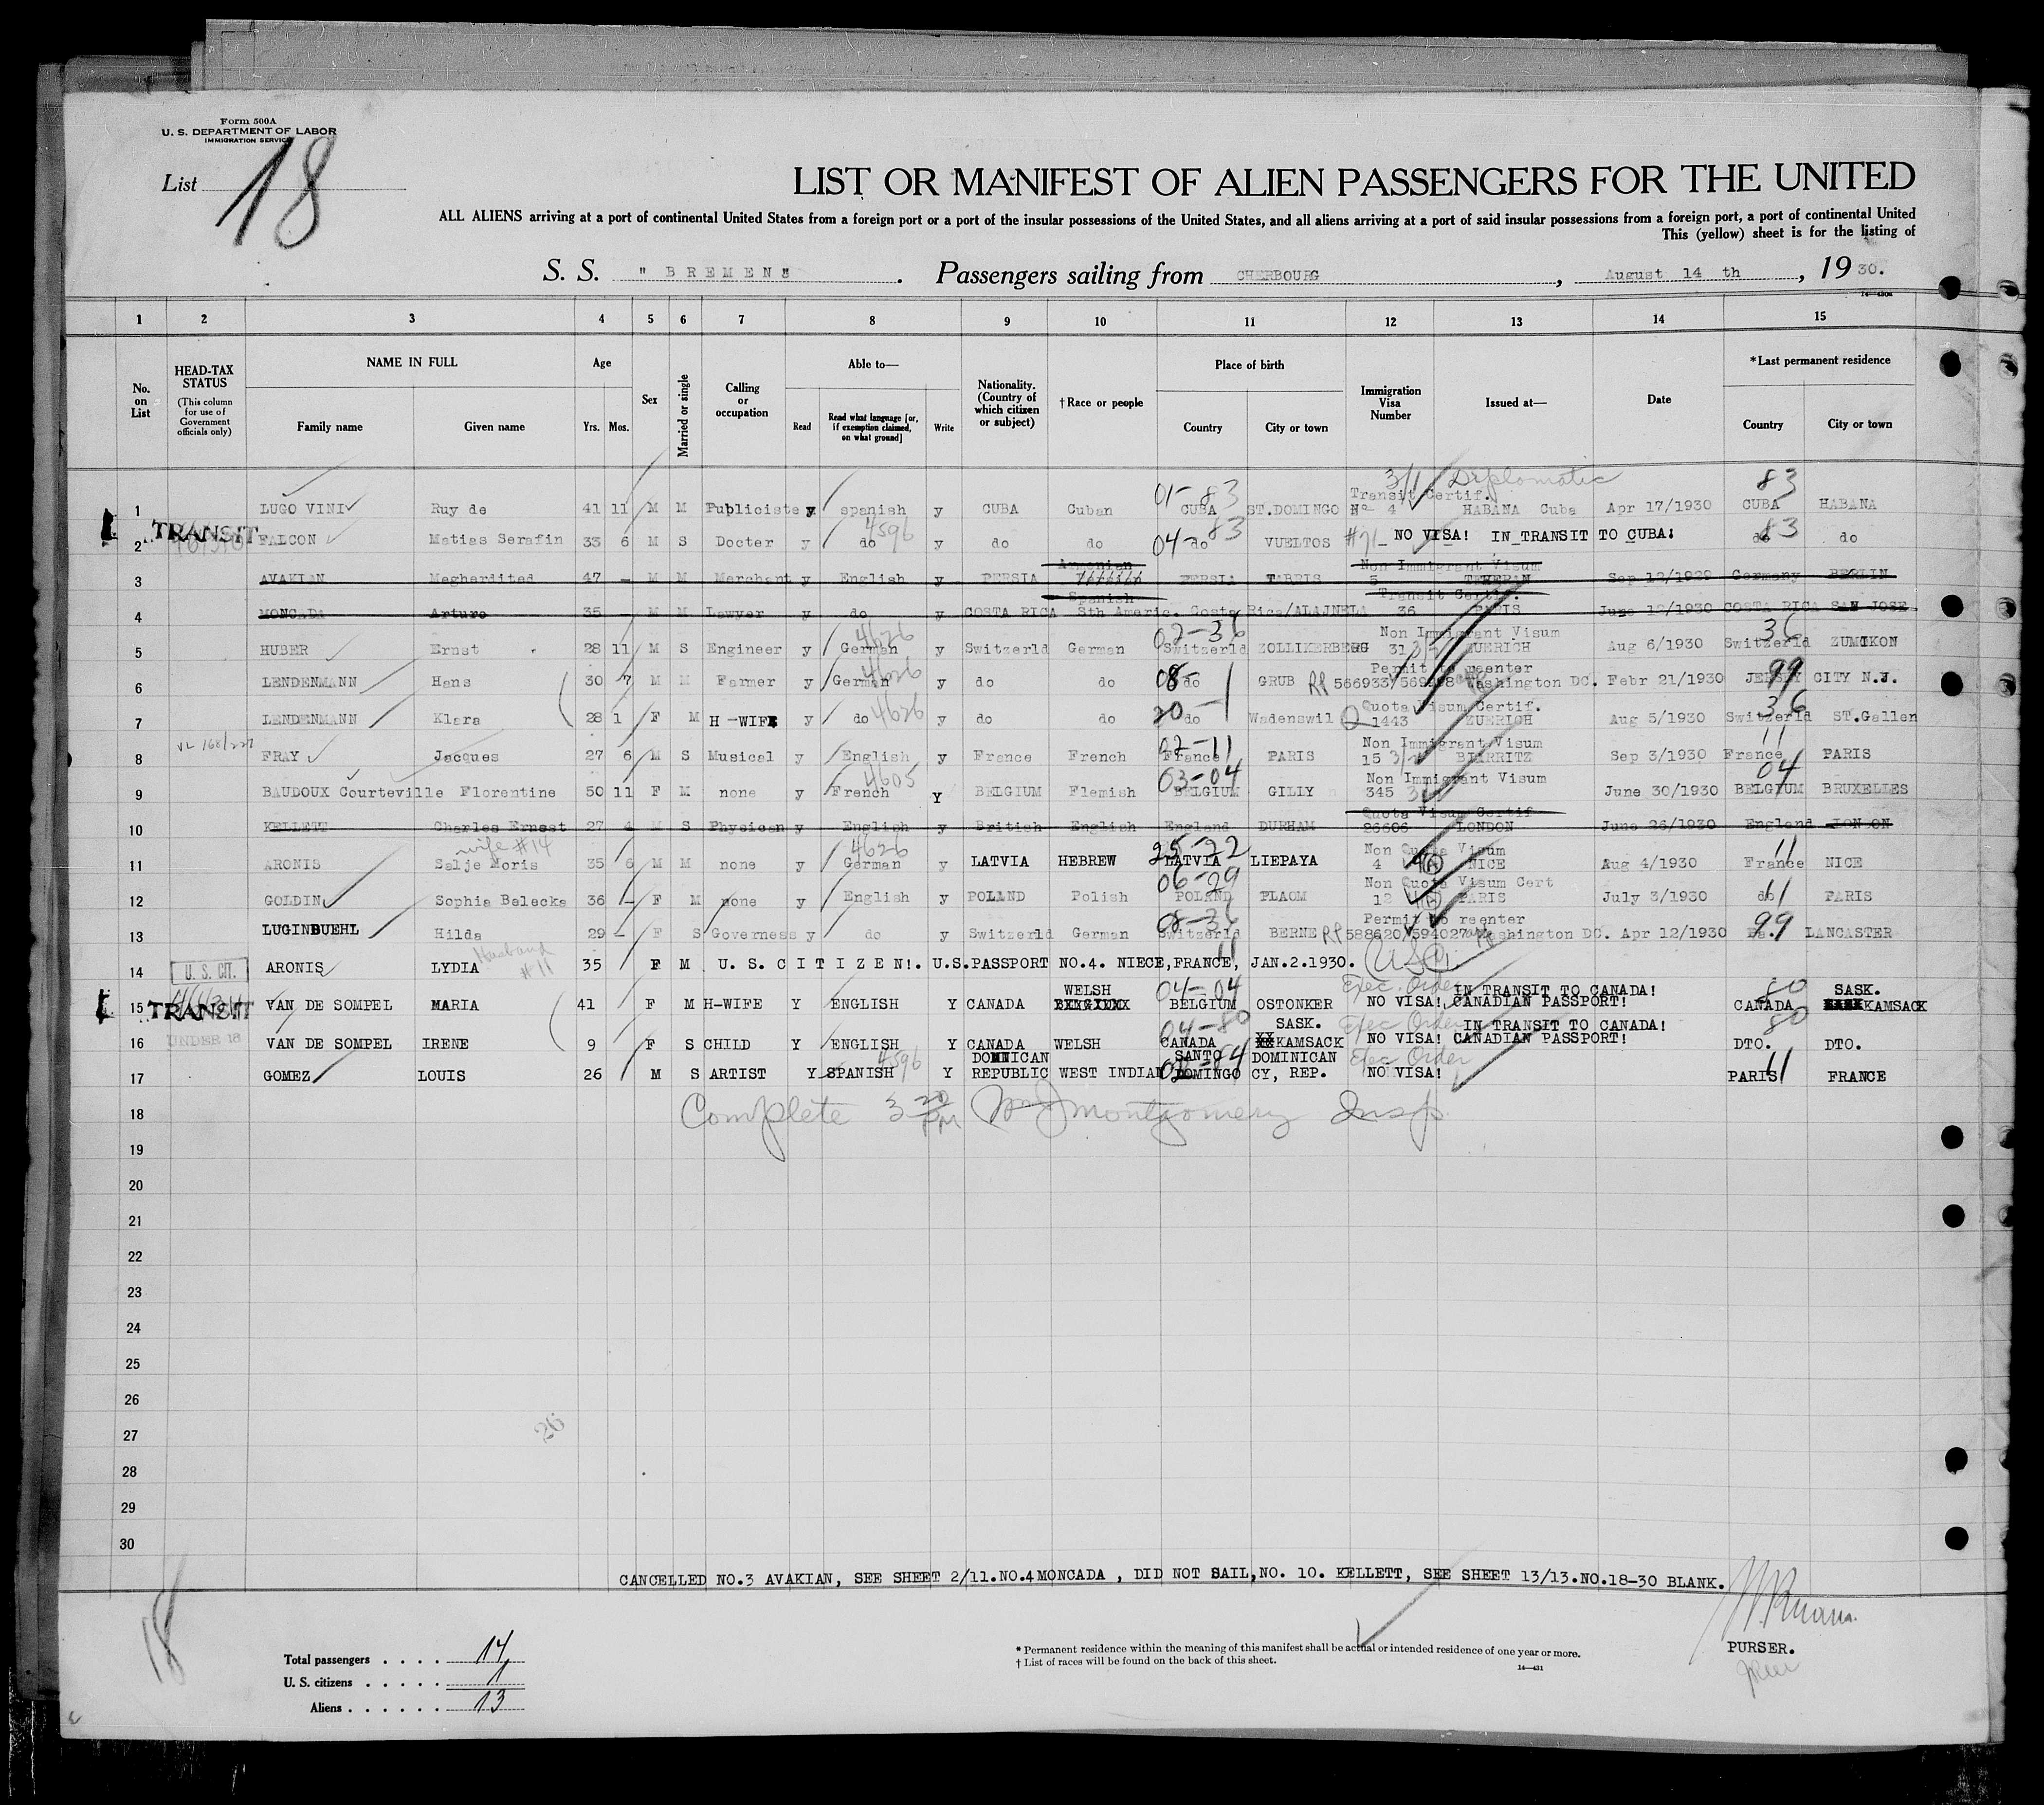 Form 500A
U. S. DEPARTMENT OF LABOR
IMMIGRATION SERVICE
List 18
LIST OR MANIFEST OF ALIEN PASSENGERS FOR THE UNITED
ALL ALIENS arriving at a port of continental United States from a foreign port or a port of the insular possessions of the United States, and all aliens arriving at a port of said insular possessions from a foreign port, a port of continental United
This (yellow) sheet is for the listing of
S. S. " BREMEN " . Passengers sailing from CHERBOURG , August 14 th , 19 30.
1 2 3 4 5 6 7 8 9 10 11 12 13 14 15
No. on List
HEAD-TAX STATUS (This column for use of Government officials only)
NAME IN FULL
Family name Given name
Age Yrs. Mos.
Sex
Married or single
Calling or occupation
Able to— Read Read what language [or, if exemption claimed, on what ground] Write
Nationality. (Country of which citizen or subject)
†Race or people
Place of birth Country City or town
Immigration Visa Number
Issued at—
Date
*Last permanent residence Country City or town
3/1 Diplomatic
01-83 Transit Certif. 83
1 LUGO VINI Ruy de 41 11 M M Publiciste y spanish y CUBA Cuban CUBA ST.DOMINGO No 4 HABANA Cuba Apr 17/1930 CUBA HABANA
TRANSIT
2 FALCON Matias Serafin 33 6 M S Docter y do 4596 y do do 04- do 83 VUELTOS #71 NO VISA! IN TRANSIT TO CUBA! do 83 do
Armenian Non Immigrant Visum
3 AVAKIAN Meghardited 47 - M M Merchant y English y PERSIA PERSIA TABRIS 5 TEHERAN Sep 12/1929 Germany BERLIN
Spanish Transit Certif.
4 MONCADA Arturo 35 - M M Lawyer y do y COSTA RICA Sth Americ. Costa Rica/ALAJNELA 36 PARIS June 12/1930 COSTA RICA SAN JOSE
4626 02-36 Non Immigrant Visum 36
5 HUBER Ernst 28 11 M S Engineer y German y Switzerld German Switzerld ZOLLIKERBERG 31 3/2 ZUERICH Aug 6/1930 Switzerld ZUMIKON
4626 Permit to reenter 99
6 LENDENMANN Hans 30 7 M M Farmer y German y do do 08- do GRUB RP 566933/569998 Washington DC. Febr 21/1930 JERSEY CITY N.J.
Quota Visum Certif. 36
7 LENDENMANN Klara 28 1 F M H-WIFE y do 4626 y do do 20- do 1 Wadenswil Q 1443 ZUERICH Aug 5/1930 Switzerld ST.Gallen
VL 168/227 02-11 Non Immigrant Visum 11
8 FRAY Jacques 27 6 M S Musical y English y France French France PARIS 15 3/2 BIARRITZ Sep 3/1930 France PARIS
4605 03-04 Non Immigrant Visum 04
9 BAUDOUX Courteville Florentine 50 11 F M none y French y BELGIUM Flemish BELGIUM GILLY 345 June 30/1930 BELGIUM BRUXELLES
Quota Visum Certif
10 KELLETT Charles Ernest 27 4 M S Physican y English y British English England DURHAM 26606 LONDON June 26/1930 England LONDON
wife #14 4626 25-22 Non Quota Visum 11
11 ARONIS Salje Moris 35 6 M M none y German y LATVIA HEBREW LATVIA LIEPAYA 4 NICE Aug 4/1930 France NICE
06-29 Non Quota Visum Cert 11
12 GOLDIN Sophia Belecka 36 - F M none y English y POLAND Polish POLAND PLAOM 12 PARIS July 3/1930 do PARIS
08-36 Permit to reenter 99
13 LUGINBUEHL Hilda 29 - F S Governess y do y Switzerld German Switzerld BERNE RP 588620/594027 Washington DC. Apr 12/1930 Pa. LANCASTER
Husband #11
14 U. S. CIT. ARONIS LYDIA 35 F M U. S. C I T I Z E N!. U.S.PASSPORT NO.4. NIECE,FRANCE, JAN.2.1930. USC
WELSH 04-04 Exec. Order IN TRANSIT TO CANADA! 80 SASK.
15 TRANSIT VAN DE SOMPEL MARIA 41 F M H-WIFE Y ENGLISH Y CANADA BELGIUM OSTONKER NO VISA! CANADIAN PASSPORT! CANADA KAMSACK
UNDER 18 04-80 SASK. Exec Order IN TRANSIT TO CANADA! 80
16 VAN DE SOMPEL IRENE 9 F S CHILD Y ENGLISH Y CANADA WELSH CANADA KAMSACK NO VISA! CANADIAN PASSPORT! DTO. DTO.
4596 DOMINICAN SANTO DOMINICAN Exec Order 11
17 GOMEZ LOUIS 26 M S ARTIST Y SPANISH Y REPUBLIC WEST INDIAN DOMINGO CY, REP. NO VISA! PARIS FRANCE
18 Complete 3 20 PM Wm J Montgomery Insp.
19
20
21
22
23
24
25
26
27
28
29
30
26
CANCELLED NO.3 AVAKIAN, SEE SHEET 2/11.NO.4MONCADA , DID NOT SAIL,NO. 10. KELLETT, SEE SHEET 13/13.NO.18-30 BLANK.
18
Total passengers . . . . 14
U. S. citizens . . . . . 1
Aliens . . . . . . 13
* Permanent residence within the meaning of this manifest shall be actual or intended residence of one year or more.
† List of races will be found on the back of this sheet.
14—431
PURSER.